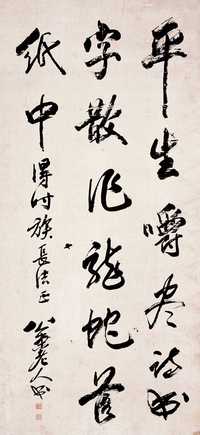 平生嚼盡詩書
字散作龍蛇落
紙中
族長法正
老人書